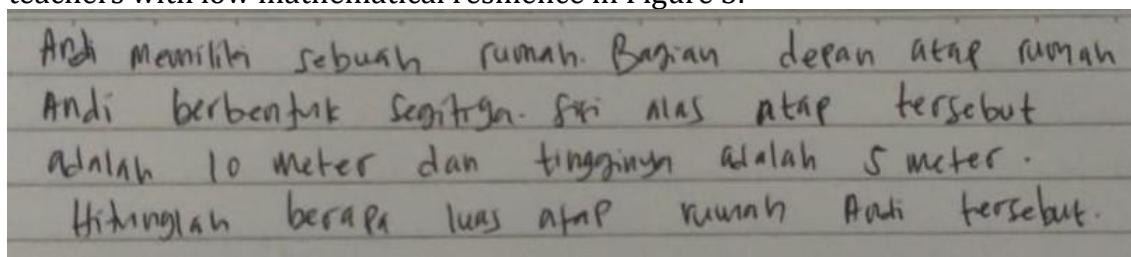 teachers with low mathematical resilience in Figure 3.
Andi memilih sebuah rumah. Bagian depan atap rumah
Andi berbentuk segitiga. Sisi alas atap tersebut
adalah 10 meter dan tingginya adalah 5 meter.
Hitunglah berapa luas atap rumah Andi tersebut.